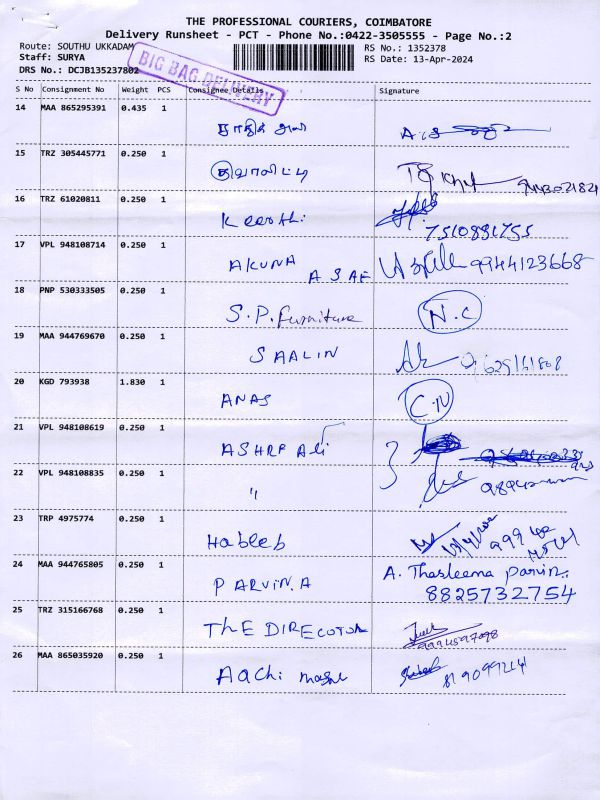 THE PROFESSIONAL COURIERS, COIMBATORE
Delivery Runsheet - PCT - Phone No.:0422-3505555 - Page No.:2
Route: SOUTHU UKKADAM
RS No.: 1352378
Staff: SURYA
RS Date: 13-Apr-2024
DRS No.: DCJB135237802
BIG BAG DELIVERY
S No Consignment No Weight PCS Consignee Details Signature
14 MAA 865295391 0.435 1
15 TRZ 305445771 0.250 1
16 TRZ 61020811 0.250 1 Keerthi 7510891755
17 VPL 948108714 0.250 1 AKUNA A SAF 9944123668
18 PNP 530333505 0.250 1 S.P. Furniture N.C
19 MAA 944769670 0.250 1 SAALIN 9629161808
20 KGD 793938 1.830 1 ANAS C.N
21 VPL 948108619 0.250 1 ASHRF Ali
22 VPL 948108835 0.250 1 "
23 TRP 4975774 0.250 1 Habeeb
24 MAA 944765805 0.250 1 PARVIN.A A. Thasleema parvin..
8825732754
25 TRZ 315166768 0.250 1 THE DIRECOTOR 9994597098
26 MAA 865035920 0.250 1 Aachi 8190997214